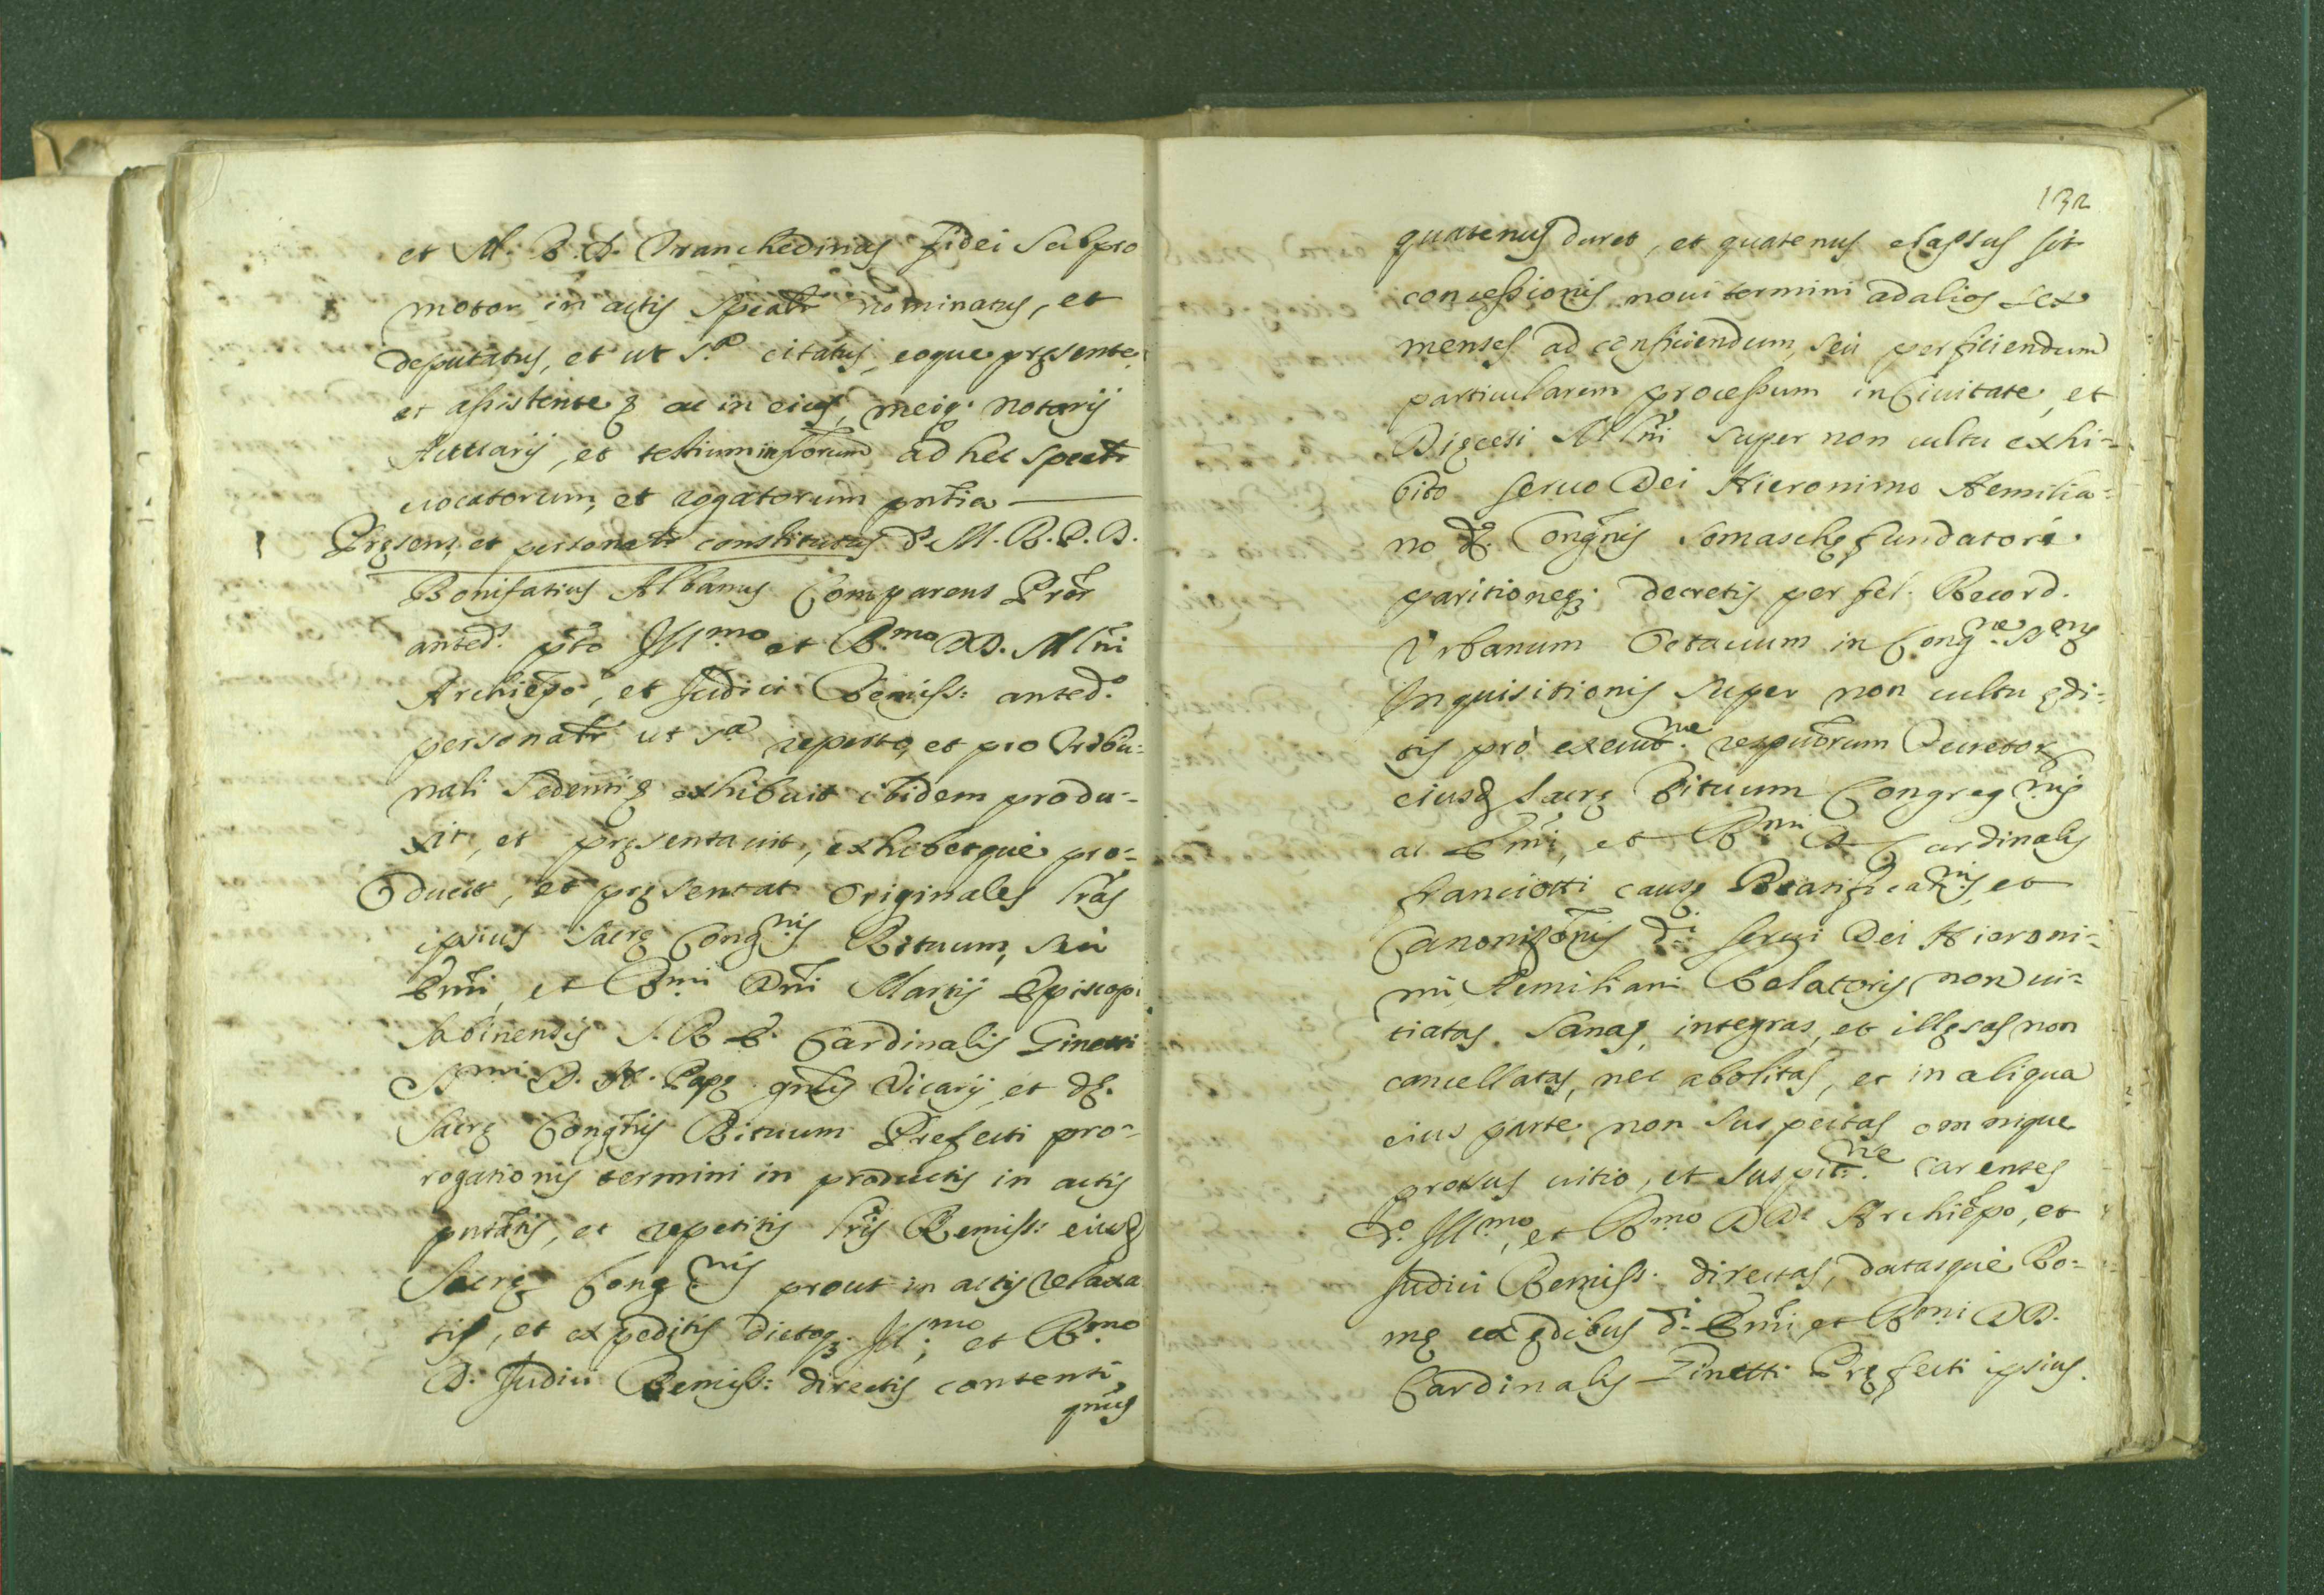 et M. R. D. Tranchedinus fidei Subpro
motor in actis Speålr nominatus, et
deputatus, et ut s.ª citatus, eoque pręsente
et assistente, ac in eius, meiq. notarij
Actuarij, et testium infrorum ad hec spealr
vocatorum, et rogatorum pñtia
Pręsens, et personalr constitutus d. M. R. P. D.
Bonifatius Albanus Comparens Prõr
anted. pto Ill.mo et R.mo DD. Mlñi
Archiepo, et Judici Remiss: anted.o
personalr ut s.ª reperto, et pro Tribu-
nali Sedenti, exhibuit ibidem produ-
xit, et pręsentavit, exhibetque pro-
ducit, et pręsentat originales lrãs
ipsius Sacrę Congnis Rituum, seu
Emi, et Rmi Dñi Martij Episcopi
Sabinensis S. R. E. Cardinalis Ginetti
Smi D. N. Papę gnlis Vicarij, et dę.
Sacrę Congñis Rituum Prefecti pro-
rogationis termini in productis in actis
pntãtis, et repetitis lris Remiss: eiusd
Sacrę Cong.nis prout in actis relaxa
tis, et expeditis dictoq. Ill.mo et R.mo
D. Judici Remiss: directis contenti,
qnus
132
quatenus duret, et quatenus elapsus sit
concessionis noui termini ad alios sex
menses ad conficiendum, seu perficiendum
particularem processum in Ciuitate, et
Dięcesi Mlñi super non cultu exhi-
bito seruo Dei Hieronimo Aemilia-
no dę. Congñis Somaschę fundatori
paritioneq. decretis per fel. Record.
Vrbanum Octauum in Cong.ne S.
Inquisitionis super non cultu ędi-
tis pro execut.ne respectorum Decretor
eiusd Sacrę Rituum Congreg.nis
ac Emi, et Rmi D. Cardinalis
franciotti causę Beatificanis, et
Canonizõnis d.i serui Dei Hieroni-
mi Aemiliani Relatoris, non vi-
tiatas, sanas, integras, et illęsas non
cancellatas, nec abolitas, et in aliqua
eius parte non suspectas omnique
prorsus uitio, et suspit.ne carentes
d.o Ill.mo, et R.mo DD. Archiepo, et
Judici Remiss: directas, datasque Ro-
mę ex ędibus d.i Emi et Rmi DD.
Cardinalis Ginetti Pręfecti ipsius.